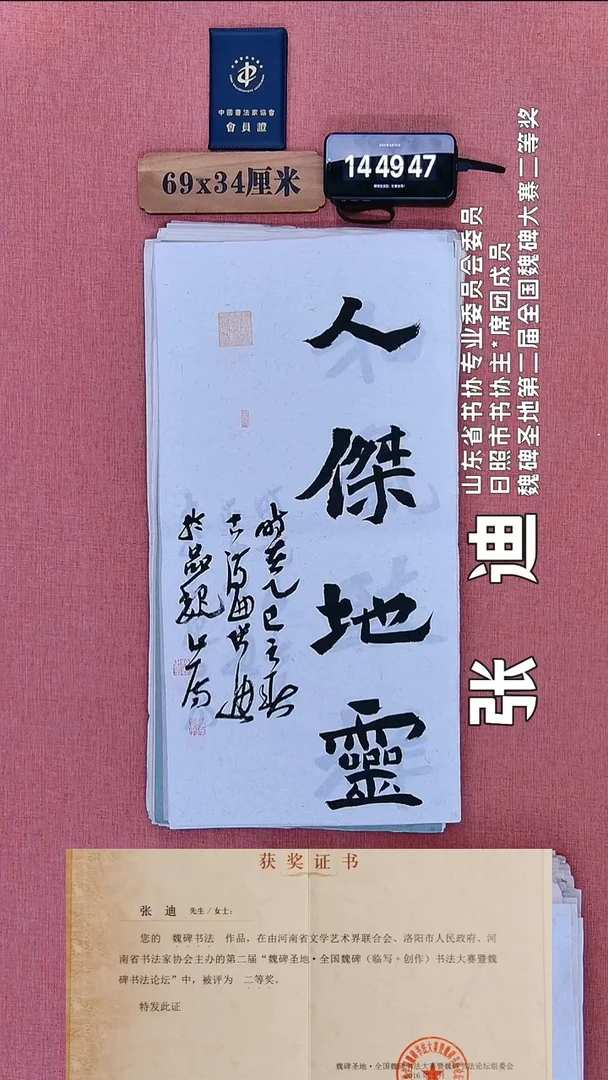 中國書法家協會
會員證
69x34厘米
14 49 47
山东省书协专业委员会委员
日照市书协主*席团成员
魏碑圣地第二届全国魏碑大赛二等奖
张 迪
人傑地靈
时在乙巳之秋
古渭曲张迪
於品魏山房
获奖证书
张 迪 先生/女士：
您的 魏碑书法 作品，在由河南省文学艺术界联合会、洛阳市人民政府、河
南省书法家协会主办的第二届“魏碑圣地·全国魏碑（临写+创作）书法大赛暨魏
碑书法论坛”中，被评为 二等奖。
特发此证
魏碑圣地·全国魏碑书法大赛暨魏碑书法论坛组委会